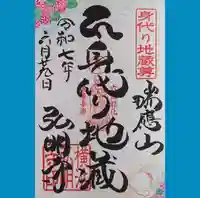 身代り地蔵尊
瑞應山
身代り地蔵
弘明寺
令和七年
六月廿九日